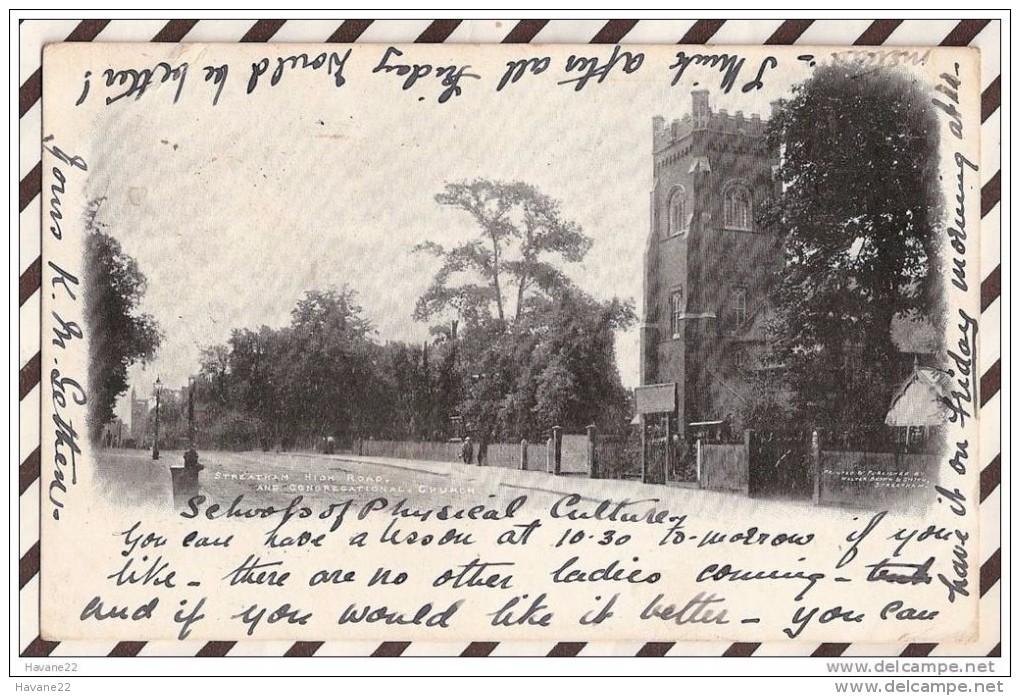 STREATHAM HIGH ROAD,
AND CONGREGATIONAL CHURCH
Schools of Physical Culture
You can have a lesson at 10-30 to-morrow if you
like - there are no other ladies coming -
and if you would like it better - you can
have it on Friday morning at 11-
I think after all Friday would be better!
Yours K. M. Getten
PRINTED & PUBLISHED
STREATHAM.
Havane22
www.delcampe.net
Havane22
www.delcampe.net